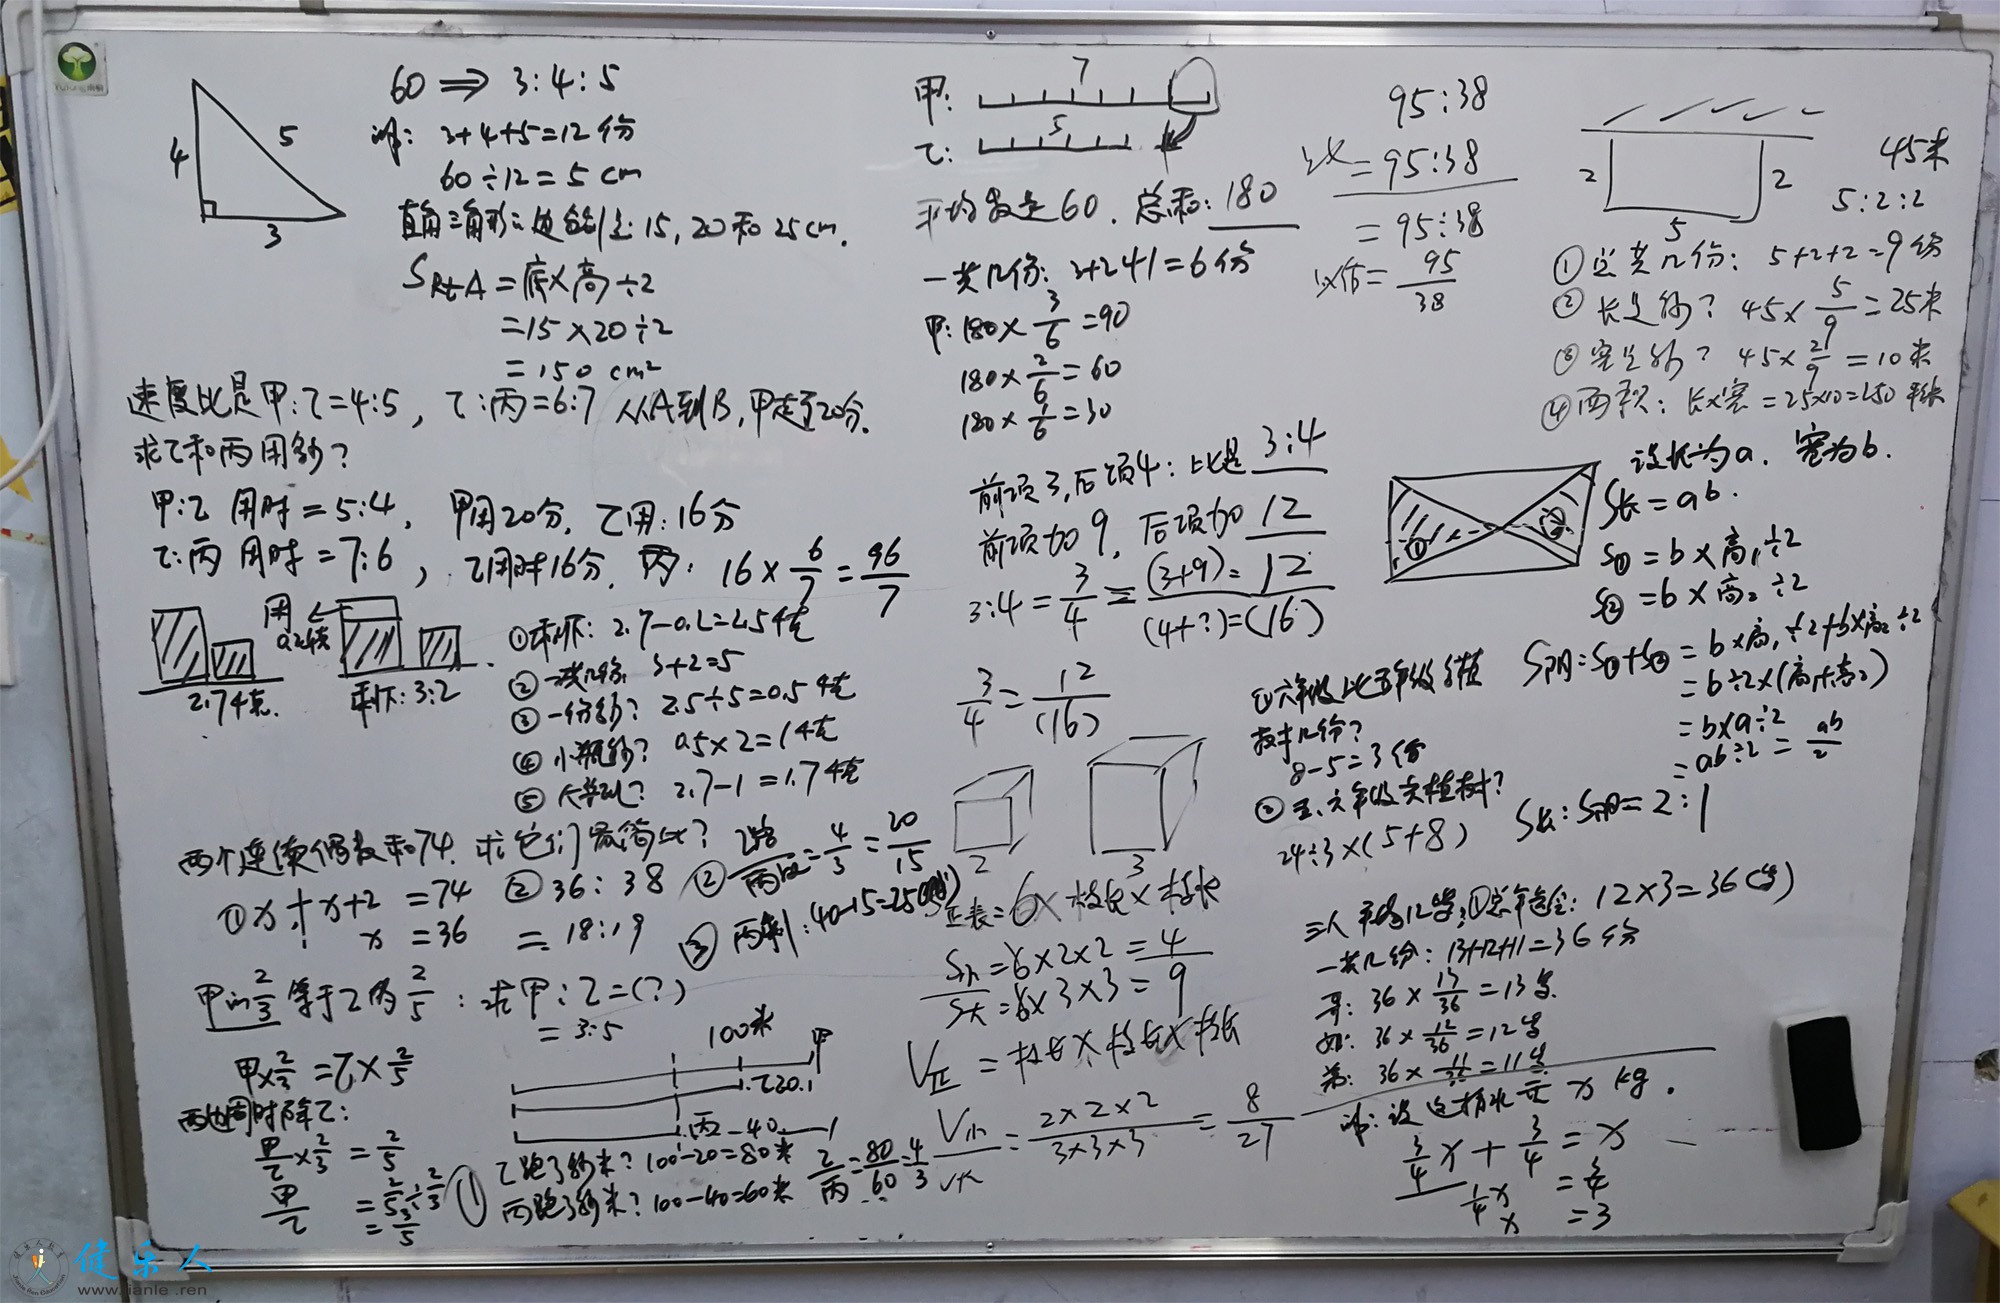 YuTong
4
5
3
60 ⟹ 3:4:5
解: 3+4+5=12份
60÷12=5cm
直角三角形三边分别是: 15, 20和25cm.
SRt△=底×高÷2
=15×20÷2
=150cm²
速度比是甲:乙=4:5, 乙:丙=6:7 从A到B, 甲走了20分.
求乙和丙用多少?
甲:乙 用时=5:4, 甲用20分, 乙用:16分
乙:丙 用时=7:6, 乙用时16分, 丙: 16×6/7=96/7
用
0.2千克
2.7千克.
剩下: 3:2
①剩下: 2.7-0.2=2.5千克
②一共几份 3+2=5
③一份多少? 2.5÷5=0.5千克
④小瓶多少? 0.5×2=1千克
⑤大 2.7-1=1.7千克
两个连续偶数和74. 求它们最简比?
①x+x+2=74
x=36
②36:38
=18:19
甲的2/3等于乙的2/5: 求甲:乙=(?)
=3:5
甲×2/3=乙×2/5
两边同时除乙:
甲/乙×2/3=2/5
甲/乙=2/5÷2/3
=3/5
②乙路/丙路=4/3=20/15
③丙剩: 40-15=25(米)
100米
甲
乙20.
丙-40.
①乙跑了多少米? 100-20=80米
丙跑了多少米? 100-40=60米
乙/丙=80/60=4/3
甲: 7
乙: 5
平均数是60. 总和: 180
一共几份: 3+2+1=6份
甲: 180×3/6=90
180×2/6=60
180×1/6=30
前项3, 后项4: 比是3:4
前项加9, 后项加12
3:4=3/4=(3+9)=12/(4+?)=(16)
3/4=12/(16)
2
3
正表=6×棱长×棱长
S小/S大=6×2×2/6×3×3=4/9
V正=棱长×棱长×棱长
V小/V大=2×2×2/3×3×3=8/27
95:38
比=95:38
=95:38
比值=95/38
2
2
5
45米
5:2:2
①总共几份: 5+2+2=9份
②长是多少? 45×5/9=25米
③宽是多少? 45×2/9=10米
④面积: 长×宽=25×10=250平米
设长为a. 宽为b.
①
②
S长=ab.
S①=b×高₁÷2
S②=b×高₂÷2
S阴=S①+S②=b×高₁÷2+b×高₂÷2
=b÷2×(高₁+高₂)
=b×a÷2
=ab÷2=ab/2
S长:S阴=2:1
①六年级比五年级多植
树几份?
8-5=3份
②五、六年级共植树?
24÷3×(5+8)
三人平均12岁: ①总年龄: 12×3=36(岁)
一共几份: 13+12+11=36份
哥: 36×13/36=13岁.
36×12/36=12岁
弟: 36×11/36=11岁
解: 设这桶水重x kg.
3/4x+3/4=x
1/4x=3/4
x=3
健乐人
www.jianle.ren